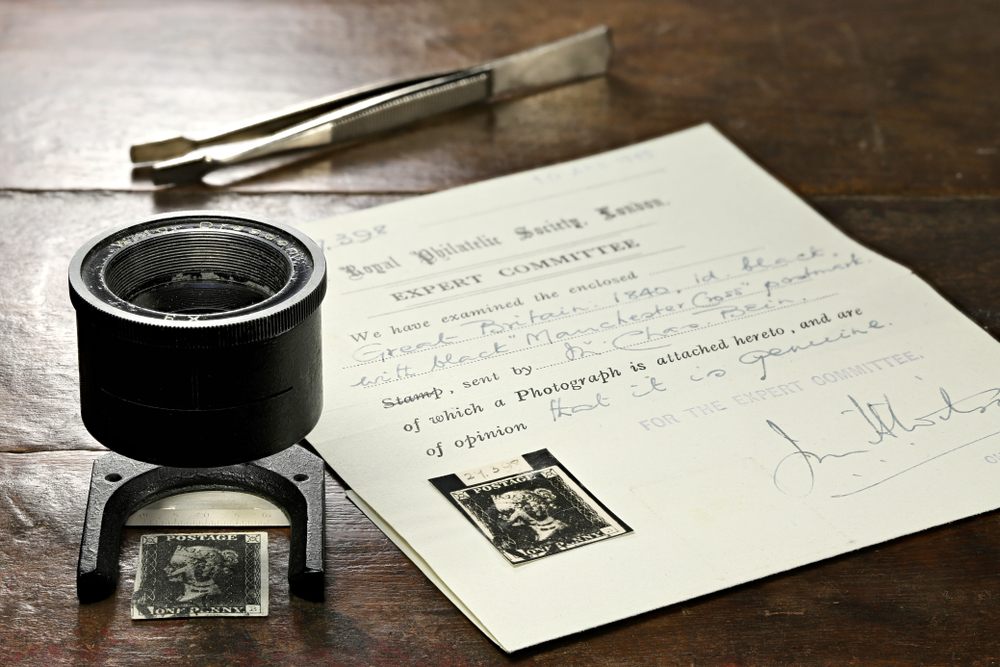 .398
Royal Philatelic Society, London.
EXPERT COMMITTEE
We have examined the enclosed
Great Britain 1840, 1d. black,
with black "Manchester Cross" postmark
Stamp, sent by Dr. Chas. Bein.
of which a Photograph is attached hereto, and are
of opinion that it is genuine.
FOR THE EXPERT COMMITTEE.
POSTAGE
ONE PENNY
8x
POSTAGE
ONE PENNY